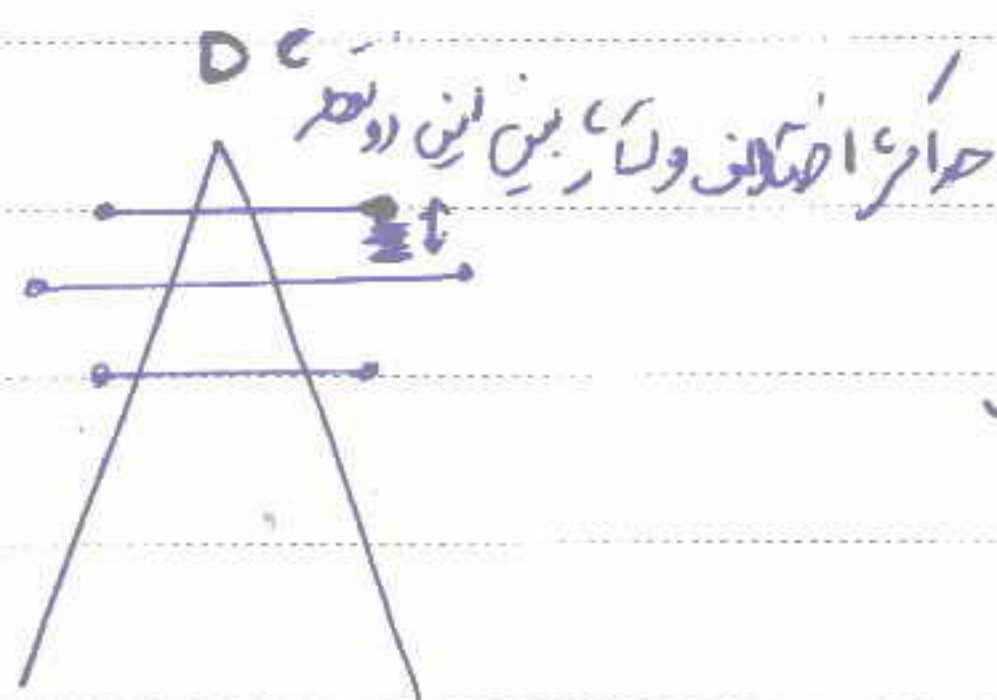 DC
حداکثر اختلاف ولتاژ بین این دو نقطه